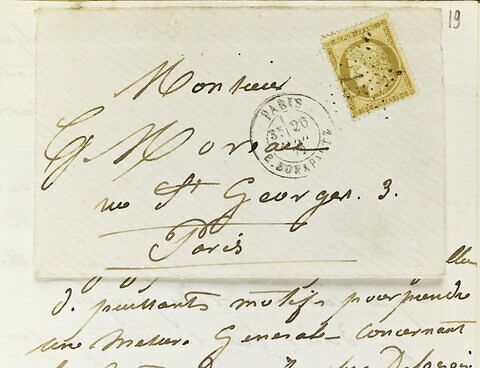 19
Monsieur
G Moreau
rue St Georges. 3.
Paris
PARIS
26
R. BONAPARTE
d. puissants motifs pour prendre
une mesure Generale concernant